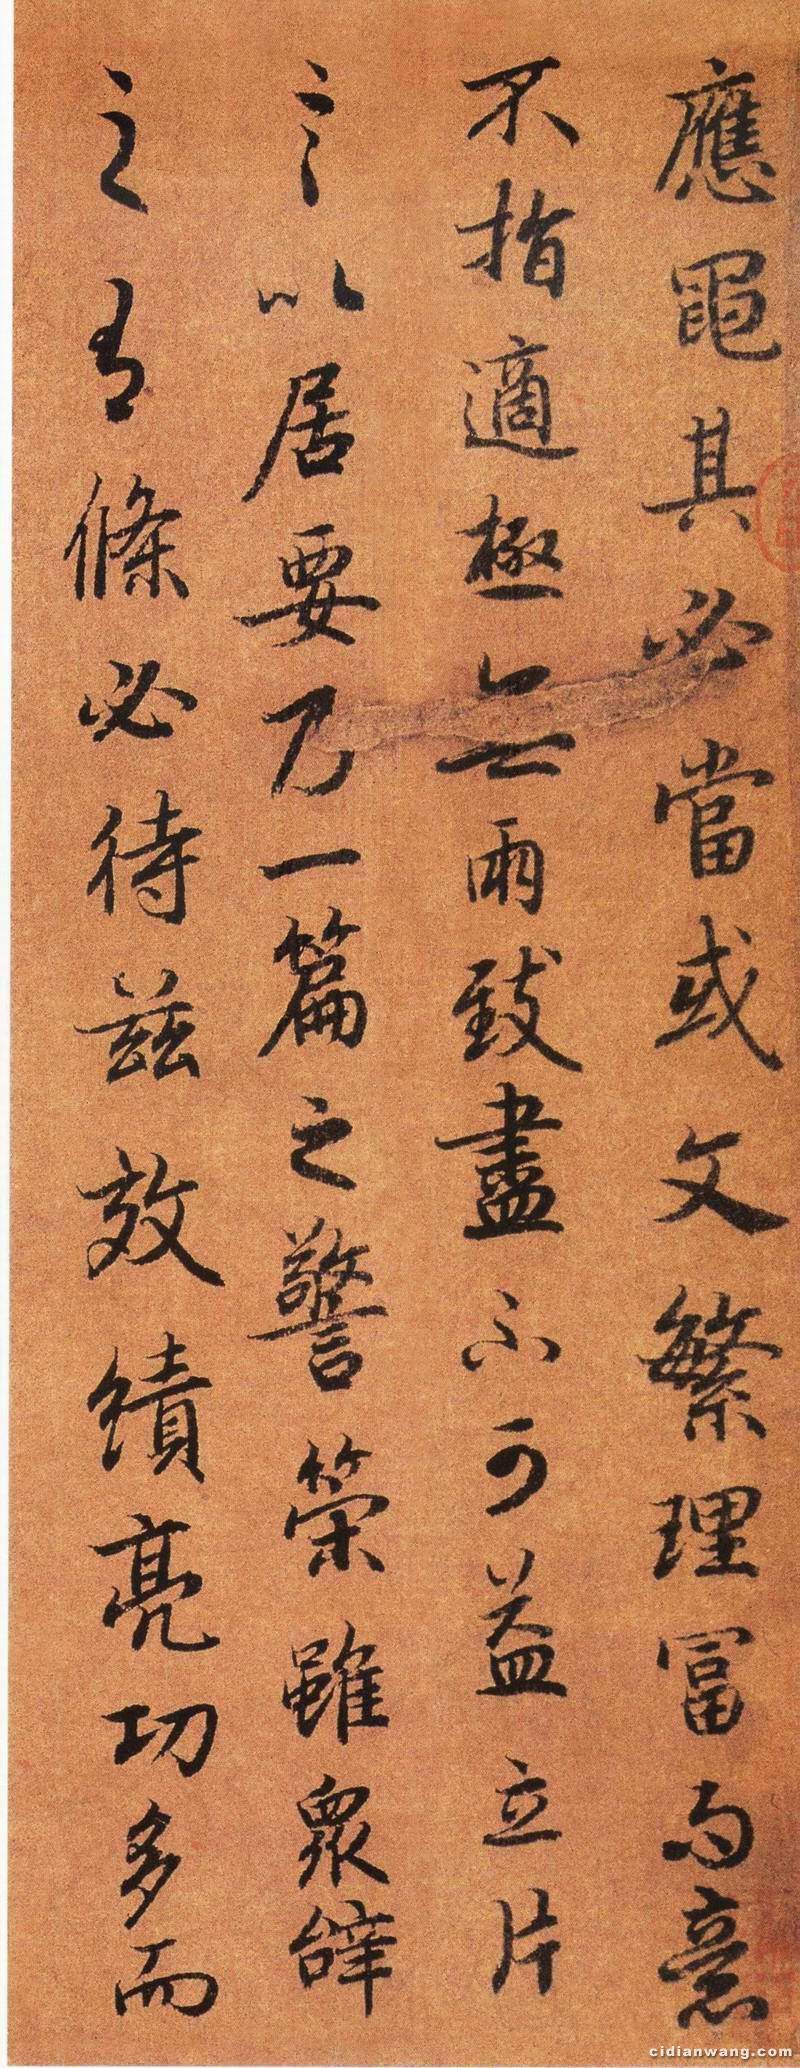 應黽其必當或文繁理富而意
不指適極無兩致盡不可益立片
言以居要乃一篇之警策雖衆辭
之有條必待茲效績亮功多而
cidianwang.com